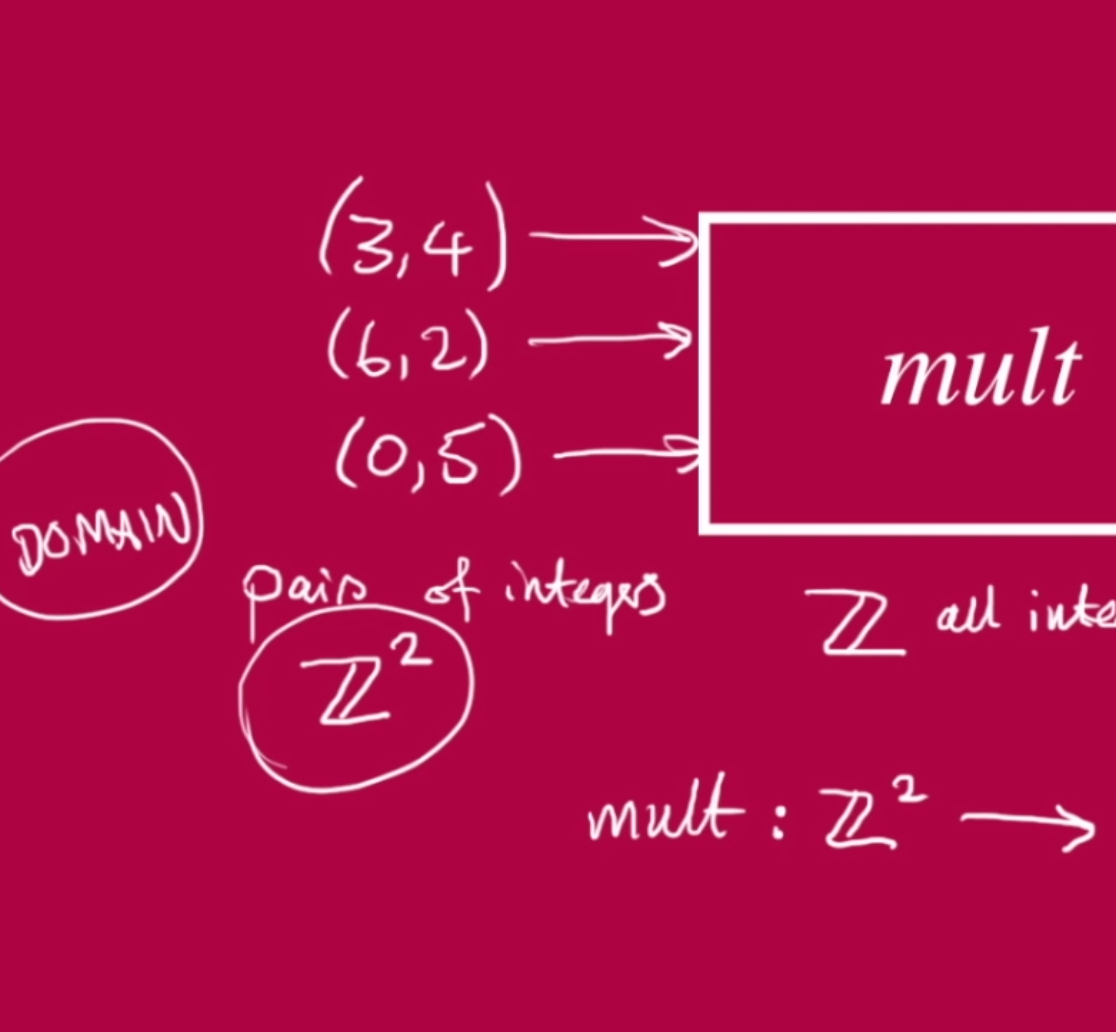 (3,4)
(6,2)
mult
(0,5)
DOMAIN
pairs of integers
ℤ all inte
ℤ²
mult : ℤ² →